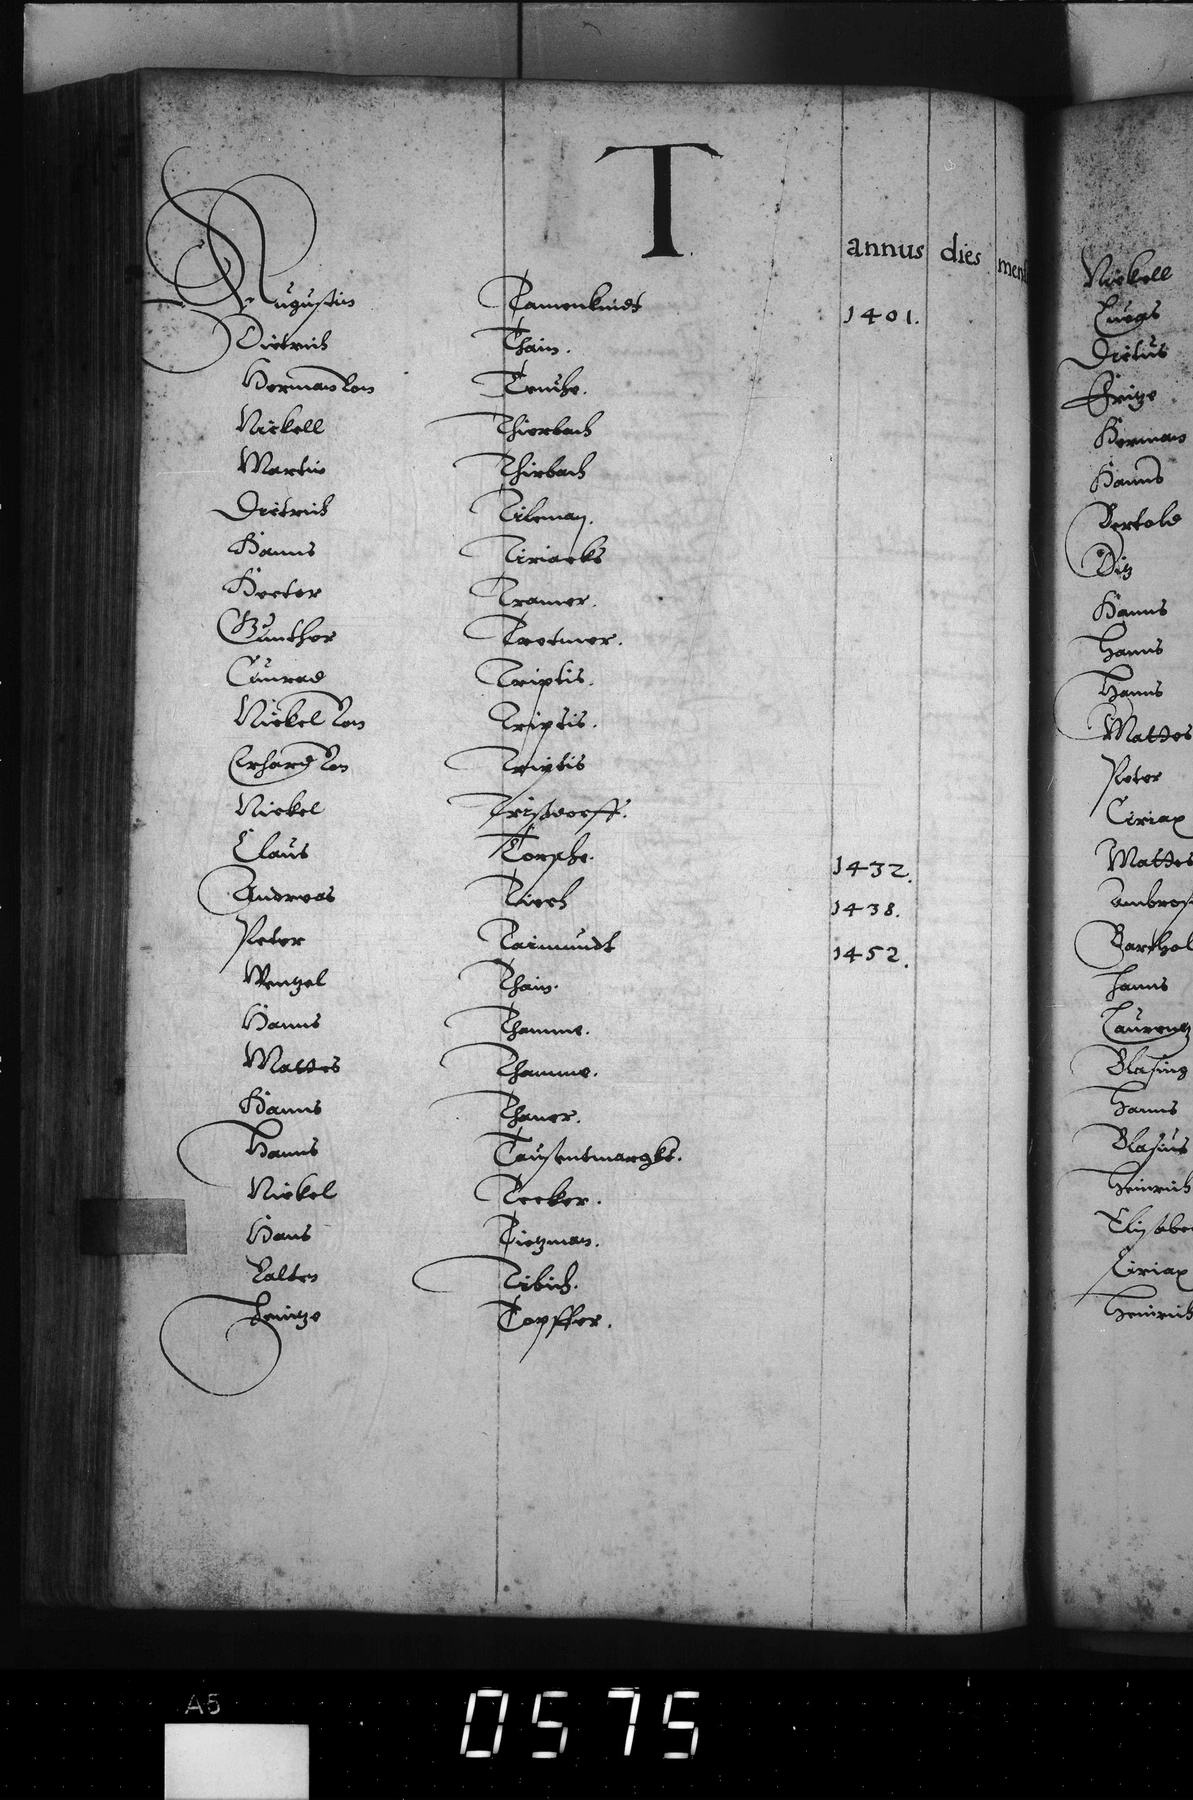 T
annus dies mens
Augustin Tamenkindt 1401.
Dietrich Thain.
Herman von Teuche.
Nickell Thierbach
Martin Thirbach
Dietrich Tileman.
Hanns Tiriacks
Hector Tramer.
Günther Trotmer.
Cunrad Triptis.
Nickel von Triptis.
Erhard von Triptis
Nickel Trißdorff.
Claus Torphe. 1432.
Andreas Tirch 1438.
Peter Taimundt 1452.
Wentzel Thain.
Hanns Thamme.
Mattes Thamme.
Hanns Thaner.
Hanns Taußentmargks.
Nickel Tecker.
Hans Titzman.
Valten Tibich.
Heintze Topffer.
Nickell
Lucas
Dictus
Fritze
Herman
Hanns
Bertold
Ditz
Hanns
Hanns
Hanns
Mattes
Peter
Ciriax
Mattes
Ambros
Barthol
Hanns
Laurentz
Blasing
Hanns
Blasius
Heinrich
Elisabe
Ciriax
Heinrich
A5
0575